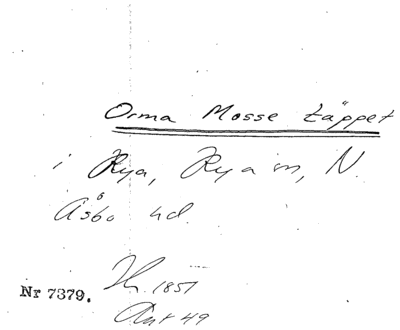 Orma Mosse täppet
i Rya, Rya sn, N.
Åsbo hd.
Nr 7379.
1851
Art 49